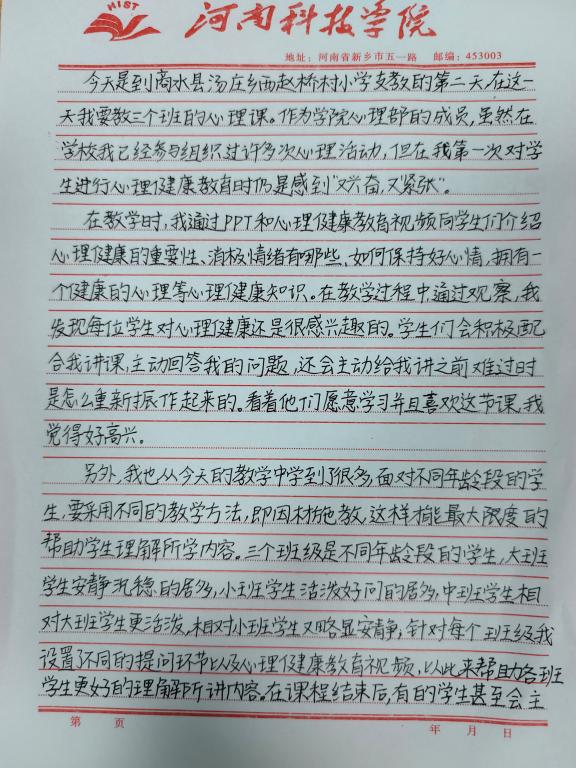 HIST
河南科技学院
地址：河南省新乡市五一路 邮编：453003
今天是到商水县汤庄乡西赵桥村小学支教的第二天，在这一
天我要教三个班的心理课。作为学院心理部的成员，虽然在
学校我已经参与组织过许多次心理活动，但在我第一次对学
生进行心理健康教育时仍是感到“又兴奋，又紧张”。
在教学时，我通过PPT和心理健康教育视频向学生们介绍
心理健康的重要性、消极情绪有哪些、如何保持好心情，拥有一
个健康的心理等心理健康知识。在教学过程中，通过观察，我
发现每位学生对心理健康还是很感兴趣的。学生们会积极配
合我讲课，主动回答我的问题，还会主动给我讲之前难过时
是怎么重新振作起来的。看着他们愿意学习并且喜欢这节课，我
觉得好高兴。
另外，我也从今天的教学中学到了很多，面对不同年龄段的学
生，要采用不同的教学方法，即因材施教，这样才能最大限度的
帮助学生理解所学内容。三个班级是不同年龄段的学生，大班
学生安静沉稳的居多，小班学生活泼好问的居多，中班学生相
对大班学生更活泼，相对小班学生又略显安静，针对每个班级我
设置了不同的提问环节以及心理健康教育视频，以此来帮助各班
学生更好的理解所讲内容。在课程结束后，有的学生甚至会主
第 页 年 月 日